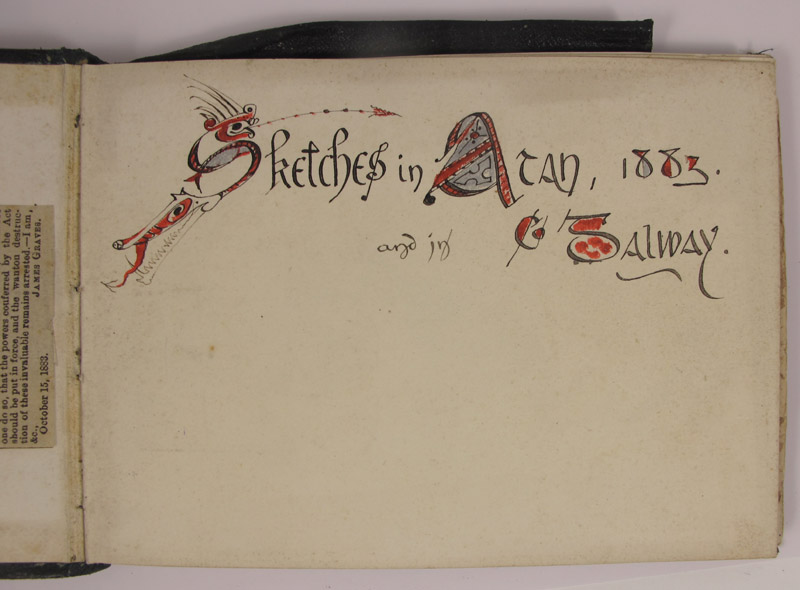 one do so, that the powers conferred by the Act
should be put in force, and the wanton destruc-
tion of these invaluable remains arrested.—I am,
&c., JAMES GRAVES.
October 15, 1883.
Sketches in Aran, 1883.
and in Co Galway.